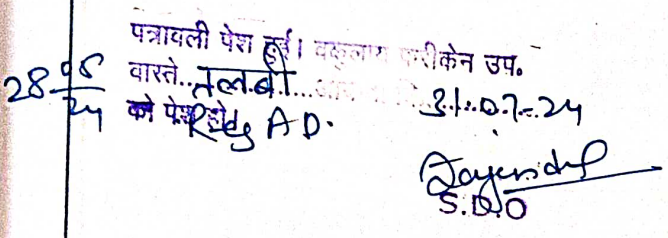 पत्रावली पेश हुई। वकुलाय फरीकेन उप.
28 05/24 वास्ते..तलबी... 31.07.24
को पेश हो Reg AD.
S.D.O